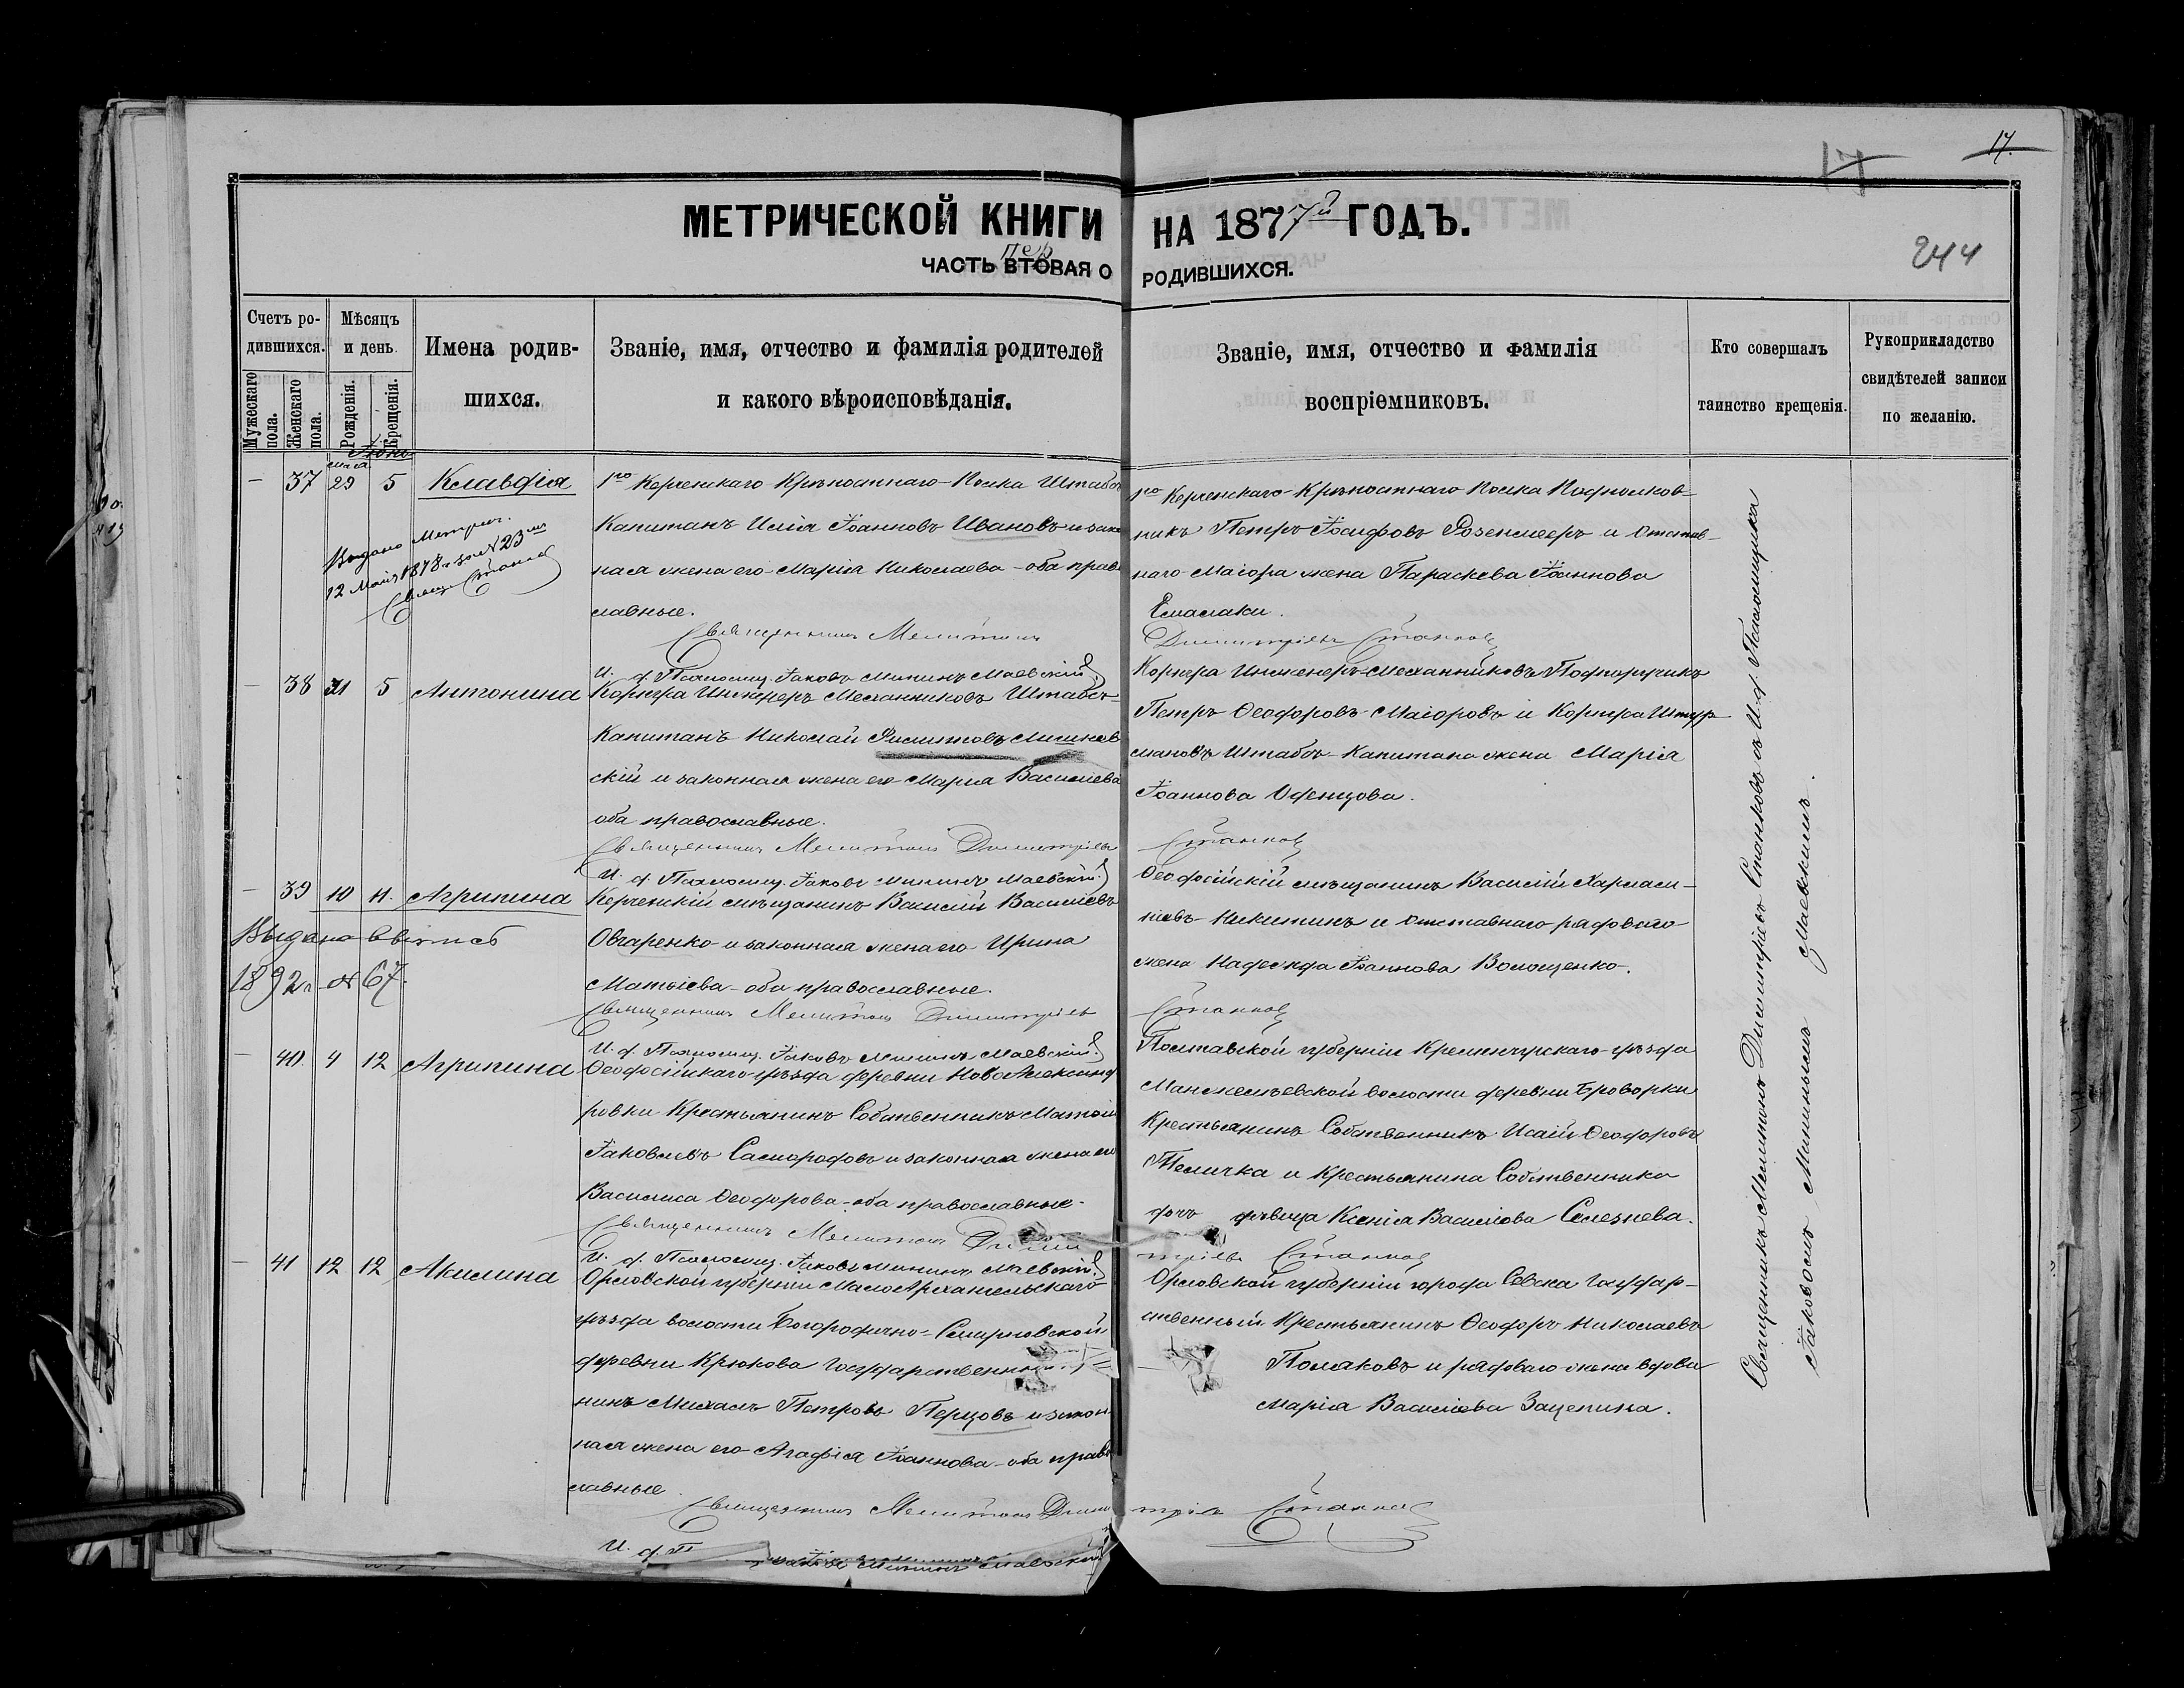 17
17.
МЕТРИЧЕСКОЙ КНИГИ НА 1877й ГОДЪ.
пер
ЧАСТЬ ВТОРАЯ О РОДИВШИХСЯ.
244
Счетъ родившихся.
Мужескаго пола.
Женскаго пола.
Мѣсяцъ и день.
Рожденія.
Крещенія.
Имена родившихся.
Званіе, имя, отчество и фамилія родителей
и какого вѣроисповѣданія.
Званіе, имя, отчество и фамилія
воспріемниковъ.
Кто совершалъ
таинство крещенія.
Рукоприкладство
свидѣтелей записи
по желанію.
Маія Іюнь
37 29 5 Клавдія
1го Керченскаго Крѣпостнаго Полка Штабсъ
Капитанъ Илія Іоанновъ Ивановъ и закон
ная жена его Марія Николаева – оба право
славные.
Священникъ Мелитонъ Димитріевъ Станковъ
И. д. Псаломщ. Іаковъ Мининъ Маевскій
1го Керченскаго Крѣпостнаго Полка Подполков-
никъ Петръ Іосифовъ Розенмееръ и Отстав-
наго Маіора жена Параскева Іоаннова
Выдано Метрич.
12 Маія 1878 г. за № 23м
Свящ. Станков
38 31 5 Антонина
Корпуса Инженеръ Механниковъ Штабсъ-
Капитанъ Николай Филиповъ Мишнев
скій и законная жена его Марія Василіева
оба православные.
Священникъ Мелитонъ Димитріевъ Станковъ
И. д. Псаломщ. Іаковъ Мининъ Маевскій
Корпуса Инженеръ-Механниковъ Подпоручикъ
Петръ Ѳеодоровъ Маіоровъ и Корпуса Штур
мановъ Штабсъ Капитана жена Марія
Іоаннова Оденцова.
39 10 11. Агрипина
Керченскій мѣщанинъ Василій Василіевъ
Овчаренко и законная жена его Ирина
Матѳіева – оба православные.
Священникъ Мелитонъ Димитріевъ Станковъ
И. д. Псаломщ. Іаковъ Мининъ Маевскій
Ѳеодосійскій мѣщанинъ Василій Харлам-
піевъ Никитинъ и отставнаго рядоваго
жена Надежда Іоаннова Волощенко.
Выдано
1892 г. № 67.
40. 4 12 Агрипина
Ѳеодосійскаго уѣзда деревни Ново Александ
ровки Крестьянинъ Собственникъ Матѳій
Іаковлевъ Самородовъ и законная жена его
Василиса Ѳеодорова – оба православные.
Священникъ Мелитонъ Димитріевъ Станковъ
И. д. Псаломщ. Іаковъ Мининъ Маевскій
Полтавской губерніи Кременчугскаго уѣзда
Манжелѣевской волости деревни Броварки
Крестьянинъ Собственникъ Исаій Ѳеодоровъ
Теличка и Крестьянина Собственника
дочь дѣвица Ксенія Василіева Селезнева.
41 12 12 Акилина
Орловской губерніи Мало Архангельскаго
уѣзда волости Богородично-
деревни Крюкова Государственный
нинъ Михаилъ Петровъ Перцовъ и закон
ная жена его Агафія Іоаннова – оба право
славные.
Священникъ Мелитонъ Димитріевъ Станковъ
И. д. Мининъ Маевскій
Орловской губерніи города Севска Государ-
ственный Крестьянинъ Ѳеодоръ Николаевъ
Поляковъ и рядоваго жена вдова
Марія Василіева Зацепина.
Священникъ Мелитонъ Димитріевъ Станковъ съ И. д. Псаломщика
Іаковомъ Мининымъ Маевскимъ.